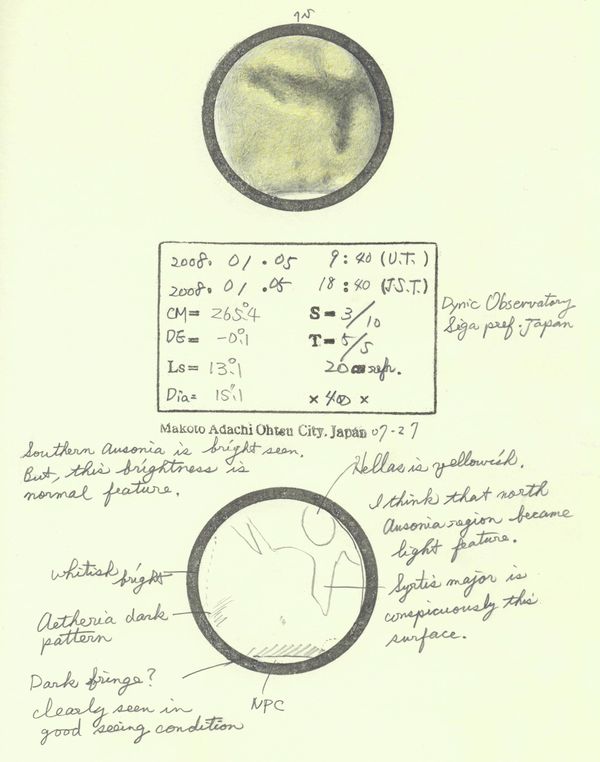 2008. 01.05 9:40 (U.T.)
2008. 01.05 18:40 (J.S.T.)
CM= 265°.4 S=3/10
DE= -0°.1 T=5/5
Ls= 13°.1 20cm refr.
Dia= 15".1 ×400×
Dynic Observatory
Siga pref. Japan
Makoto Adachi Ohtsu City, Japan 07-27
Southern Ausonia is bright seen.
But, this brightness is
normal feature.
Hellas is yellowish.
I think that north
Ausonia region became
light feature.
whitish bright
Aetheria dark
pattern
Syrtis major is
conspicuously this
surface.
Dark fringe?
clearly seen in
good seeing condition
NPC